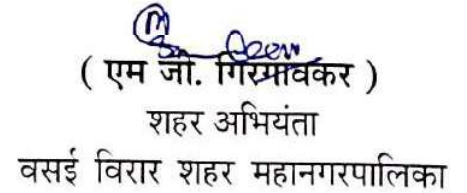 ( एम जी. गिरगावकर )
शहर अभियंता
वसई विरार शहर महानगरपालिका